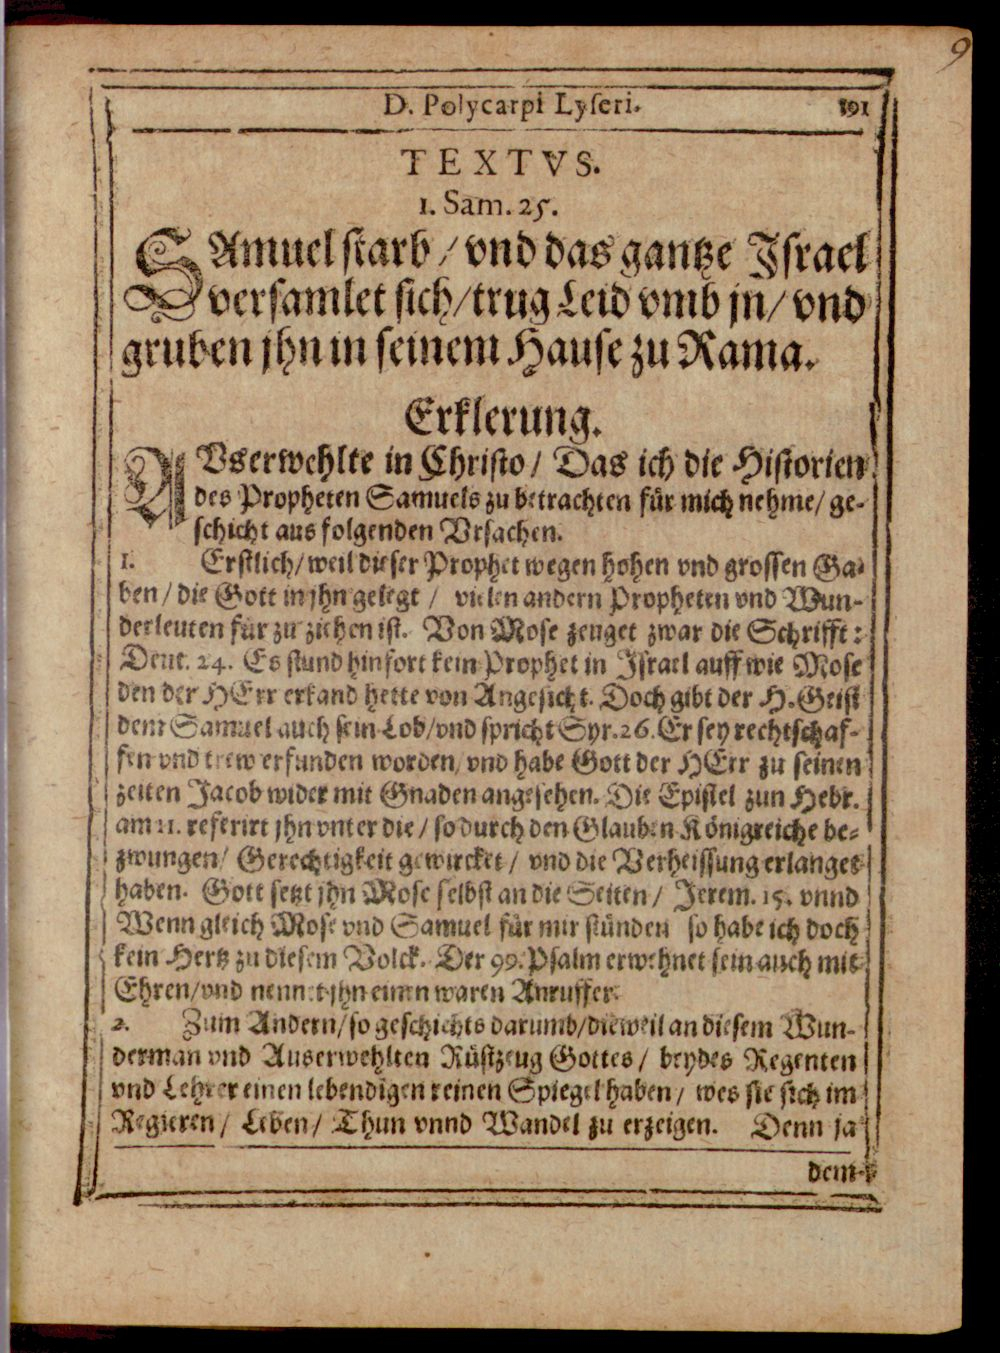 9
D. Polycarpi Lyseri. 191
TEXTVS.
1. Sam. 25.
SAmuel starb / vnd das gantze Israel
versamlet sich / trug Leid vmb jn / vnd
gruben jhn in seinem Hause zu Rama.
Erklerung.
AVserwehlte in Christo / Das ich die Historien
des Propheten Samuels zu betrachten für mich nehme / ge-
schicht aus folgenden Vrsachen.
1. Erstlich / weil dieser Prophet wegen hohen vnd grossen Ga-
ben / die Gott in jhn gelegt / vielen andern Propheten vnd Wun-
derleuten für zu ziehen ist. Von Mose zeuget zwar die Schrifft:
Deut. 24. Es stund hinfort kein Prophet in Israel auff wie Mose
den der HErr erkand hette von Angesicht. Doch gibt der H. Geist
dem Samuel auch sein Lob / vnd spricht Syr. 26. Er sey rechtschaf-
fen vnd trew erfunden worden / vnd habe Gott der HErr zu seinen
zeiten Jacob wider mit Gnaden angesehen. Die Epistel zun Hebr.
am 11. referirt jhn vnter die / so durch den Glauben Königreiche be-
zwungen / Gerechtigkeit gewircket / vnd die Verheissung erlanget
haben. Gott setzt jhn Mose selbst an die Seiten / Jerem. 15. vnnd
Wenn gleich Mose vnd Samuel für mir stünden so habe ich doch
kein Hertz zu diesem Volck. Der 99. Psalm erwehnet sein auch mit
Ehren / vnd nennet jhn einen waren Anruffer.
2. Zum Andern / so geschichts darumb / dieweil an diesem Wun-
derman vnd Auserwehlten Rüstzeug Gottes / beydes Regenten
vnd Lehrer einen lebendigen reinen Spiegel haben / wes sie sich im
Regieren / Leben / Thun vnnd Wandel zu erzeigen. Denn ja
dem-